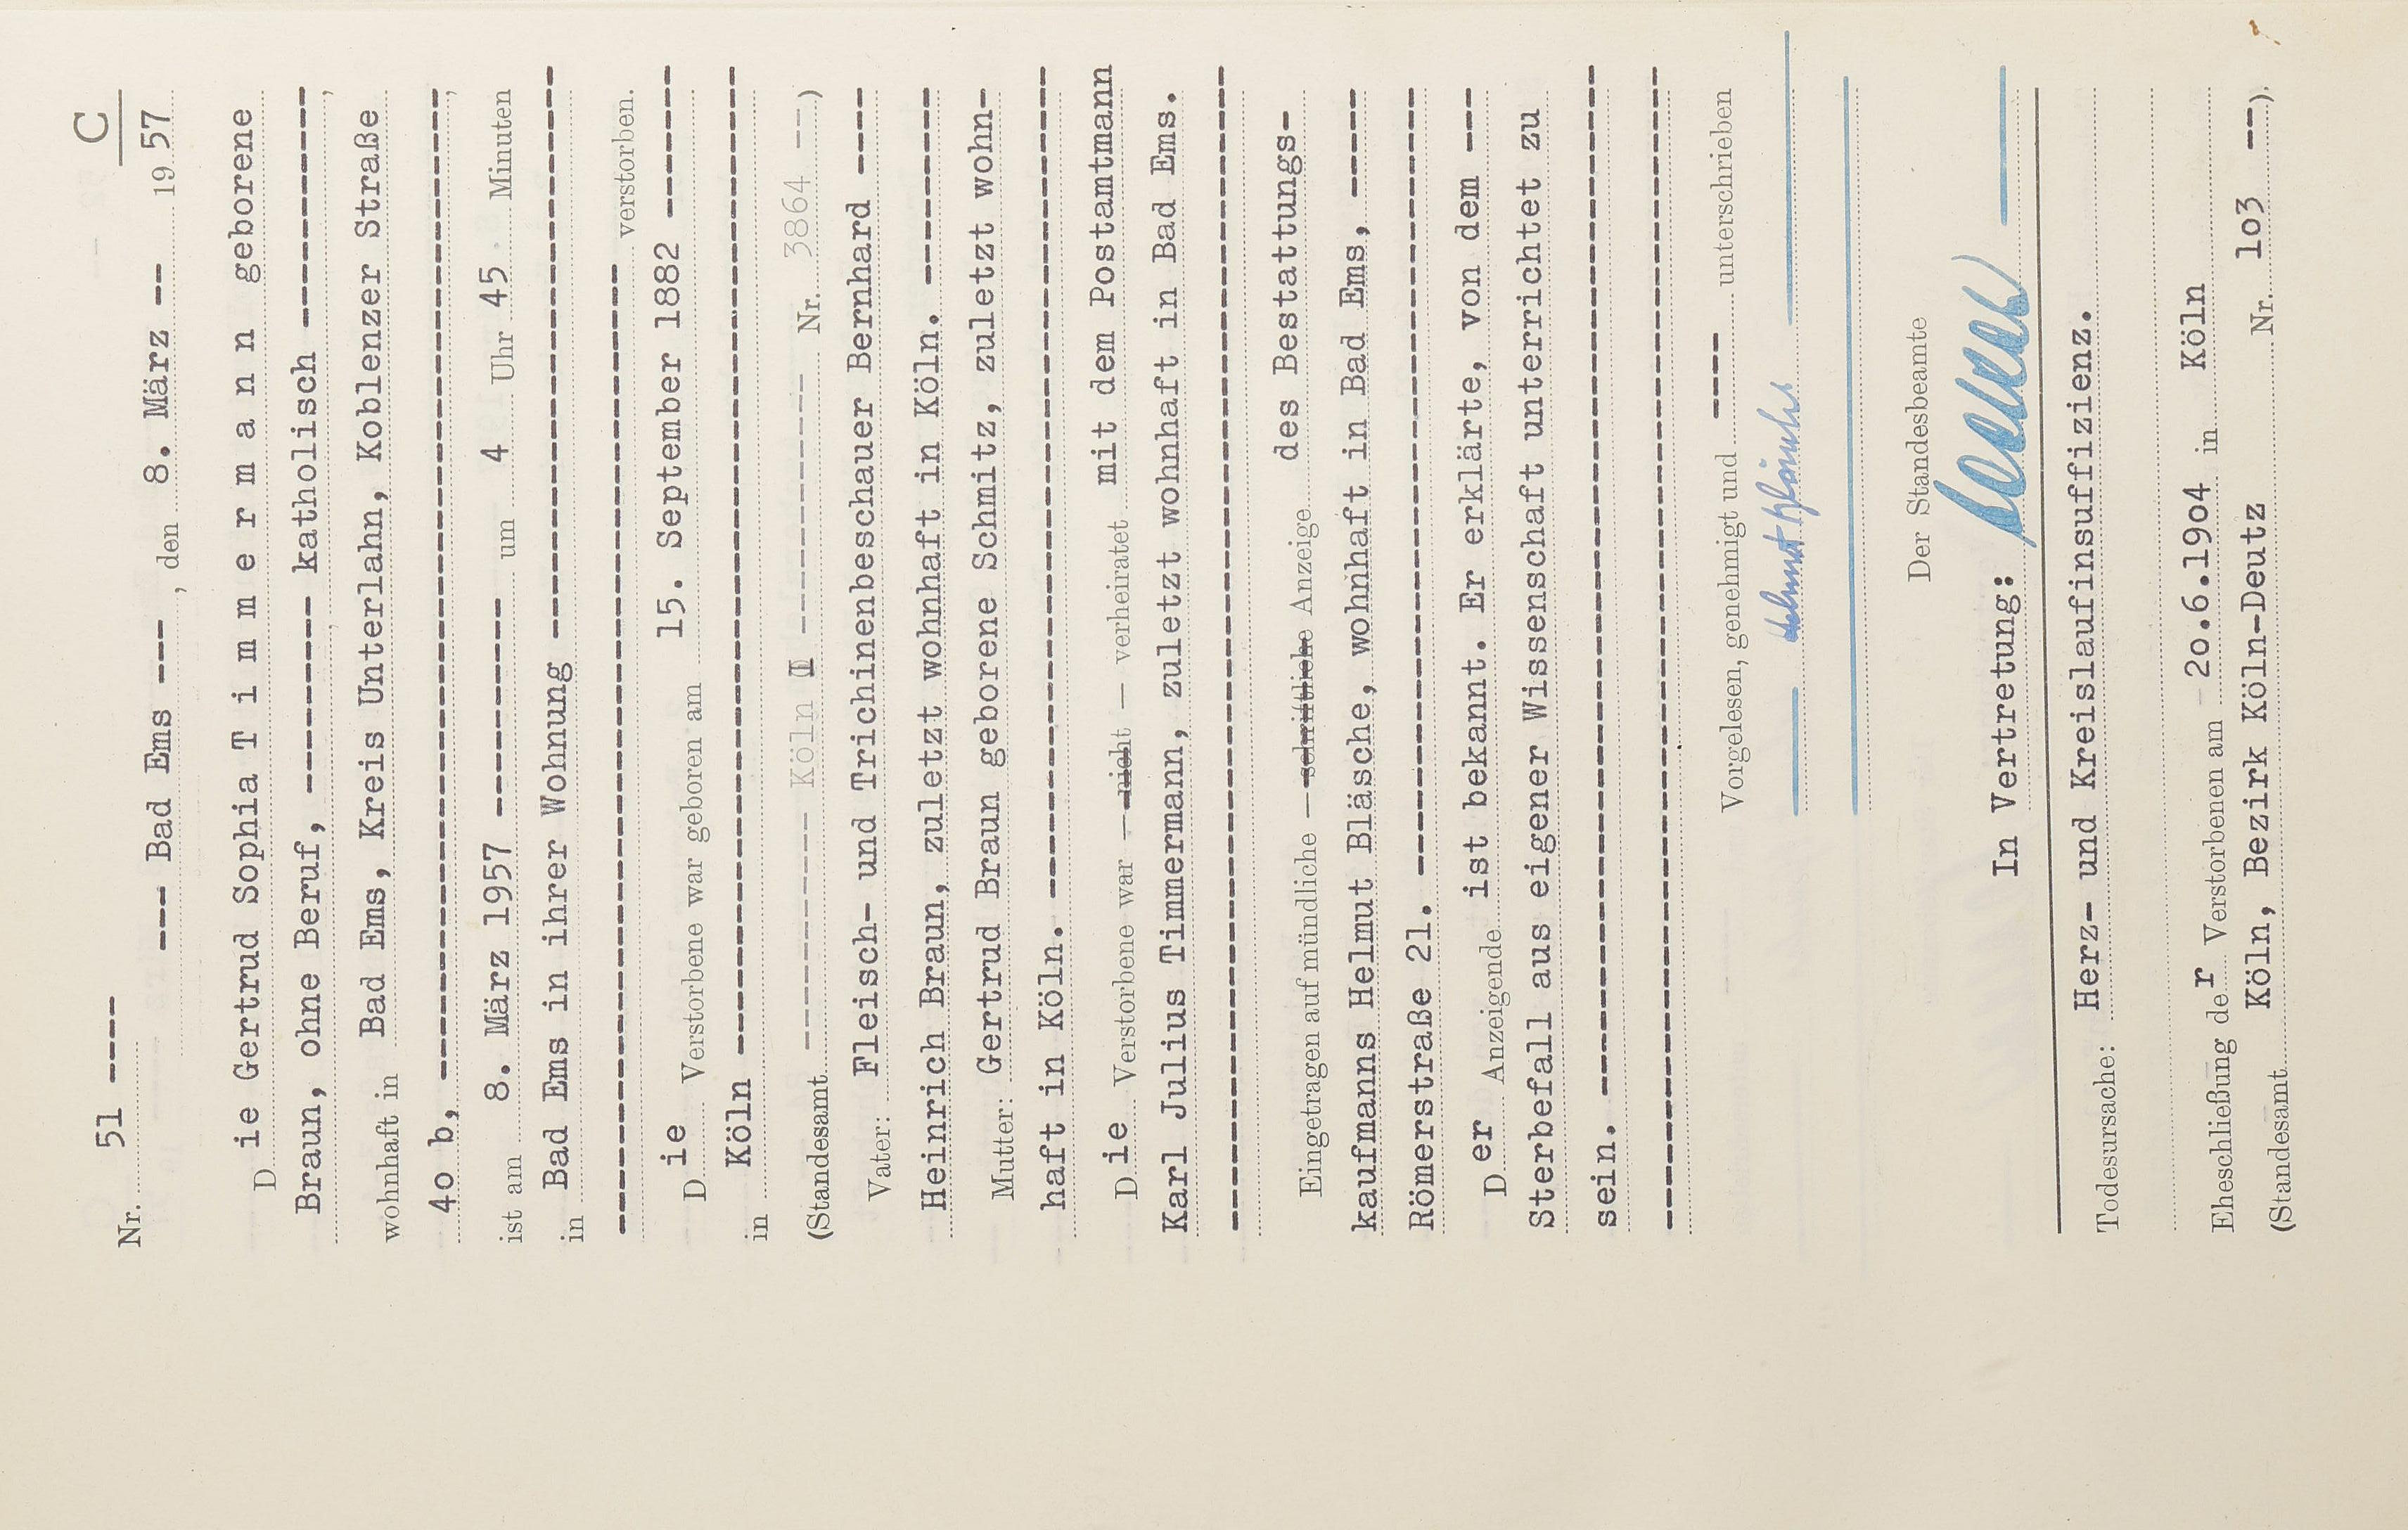 C
Nr. 51 ----
--- Bad Ems ---, den 8. März -- 19 57
Die Gertrud Sophia T i m m e r m a n n geborene
Braun, ohne Beruf, --------- katholisch ----------,
wohnhaft in Bad Ems, Kreis Unterlahn, Koblenzer Straße
4o b, ----------------------------------------------,
ist am 8. März 1957 ---------- um 4 Uhr 45 Minuten
in Bad Ems in ihrer Wohnung --------------------------
--------------------------------------------- verstorben.
Die Verstorbene war geboren am 15. September 1882 -------
in Köln ----------------------------------------------
(Standesamt ----------- Köln I ------------ Nr. 3864 --)
Vater: Fleisch- und Trichinenbeschauer Bernhard ----
Heinrich Braun, zuletzt wohnhaft in Köln. ---------
Mutter: Gertrud Braun geborene Schmitz, zuletzt wohn-
haft in Köln. ---------------------------------------
Die Verstorbene war — nicht — verheiratet mit dem Postamtmann
Karl Julius Timmermann, zuletzt wohnhaft in Bad Ems.
------------------------------------------------------
Eingetragen auf mündliche — schriftliche Anzeige des Bestattungs-
kaufmanns Helmut Bläsche, wohnhaft in Bad Ems, -----
Römerstraße 21. -------------------------------------
Der Anzeigende ist bekannt. Er erklärte, von dem ---
Sterbefall aus eigener Wissenschaft unterrichtet zu
sein. ------------------------------------------------
------------------------------------------------------
Vorgelesen, genehmigt und ---- unterschrieben
Helmut Bläsche
Der Standesbeamte
In Vertretung:
Todesursache: Herz- und Kreislaufinsuffizienz.
Eheschließung der Verstorbenen am 2o.6.19o4 in Köln
(Standesamt Köln, Bezirk Köln-Deutz Nr. 1o3 --).